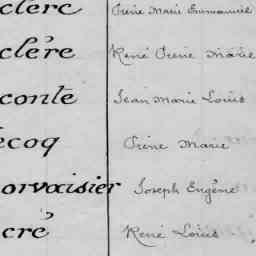 clerc Pierre Marie Emmanuel
clère René Pierre Marie
conte Jean Marie Louis
ecoq Pierre Marie
orvaisier Joseph Eugène
cré René Louis